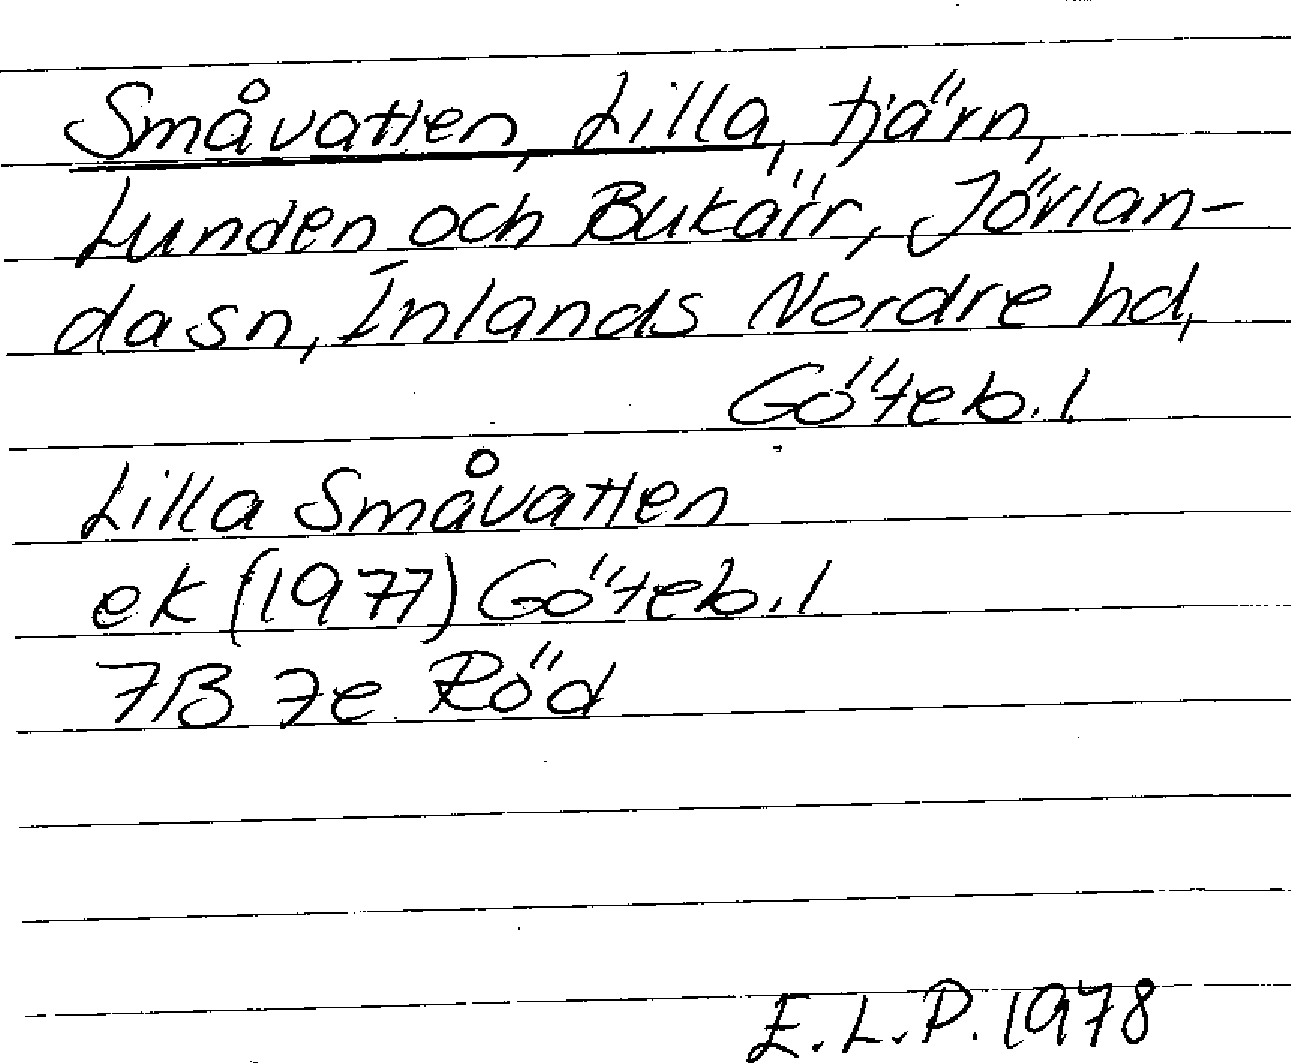 Småvatten, Lilla, tjärn,
Lunden och Bukärr, Jörlan-
da sn, Inlands Nordre hd,
Göteb. l
Lilla Småvatten
ek (1977) Göteb. l
7B 7e Röd
E. L. P. 1978